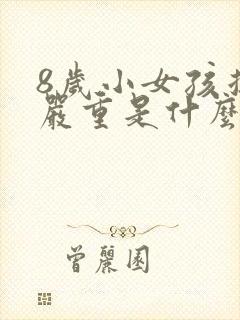 8歲小女孩
嚴重是什麼
曾麗園